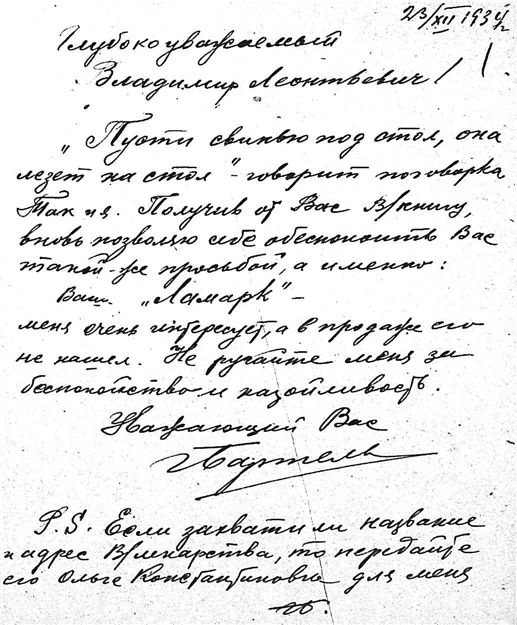 23/XII 1934 г.
Глубокоуважаемый
Владимир Леонтьевич!
"Пусти свинью под стол, она
лезет на стол" - говорит поговорка
Так и я. Получив от Вас В/книгу,
вновь позволю себе обеспокоить Вас
такой-же просьбой, а именно:
Ваш "Ламарк" -
меня очень интересует, а в продаже его
не нашел. Не ругайте меня за
беспокойство и назойливость.
Уважающий Вас
P.S. Если захватили название
и адрес В/лекарства, то передайте
его Ольге Константиновне для меня